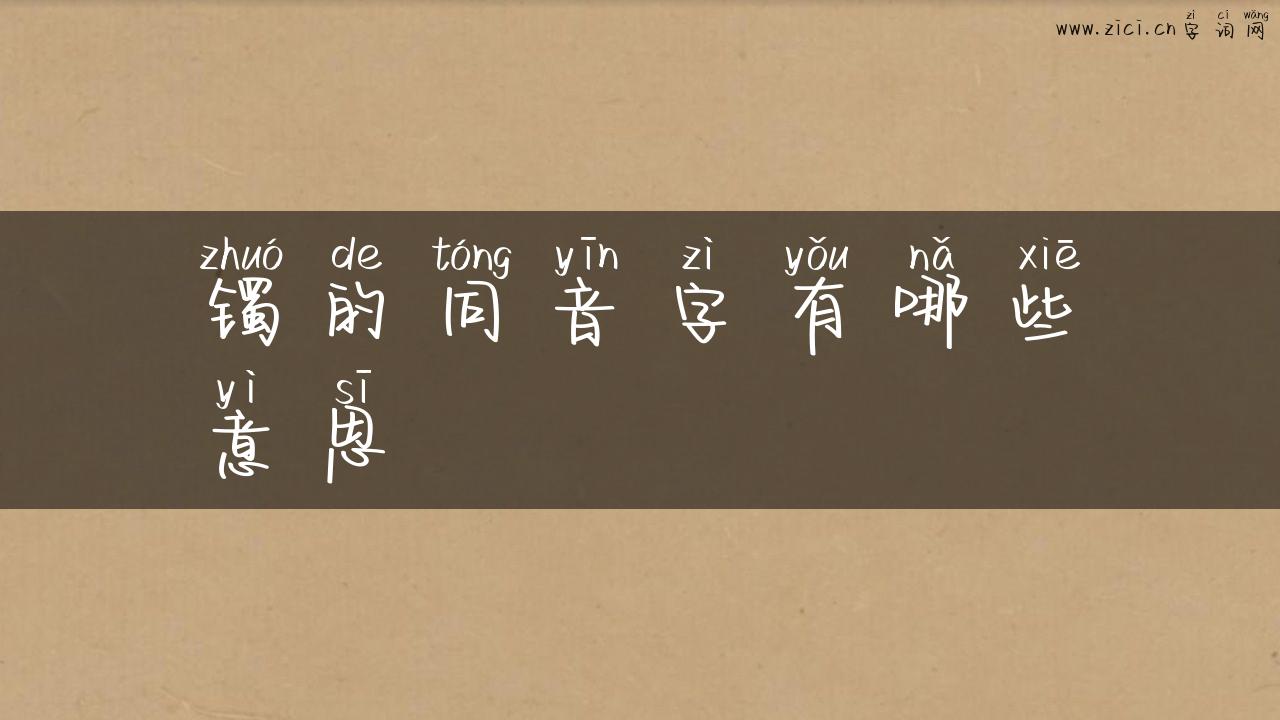 zì cí wǎng
www.zici.cn 字词网
zhuó de tóng yīn zì yǒu nǎ xiē
镯的同音字有哪些
yì sī
意思